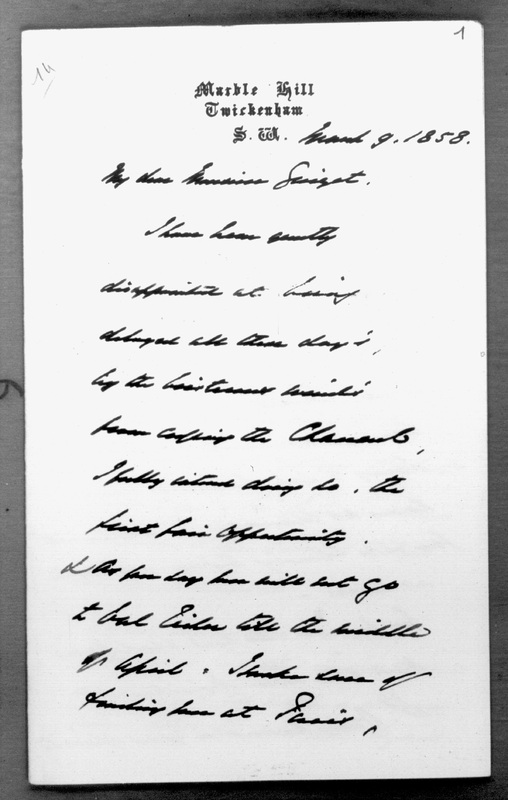 14
1
Marble Hill
Twickenham
S. W. March 9. 1858.
My dear Monsieur Guizot.
I have been greatly
disappointed at being
delayed all these day's,
by the boisterous wind's
from crossing the Channel,
I fully intend doing so, the
first fair opportunity.
& As you say you will not go
to Val Richer till the middle
of April, I make sure of
finding you at Paris,